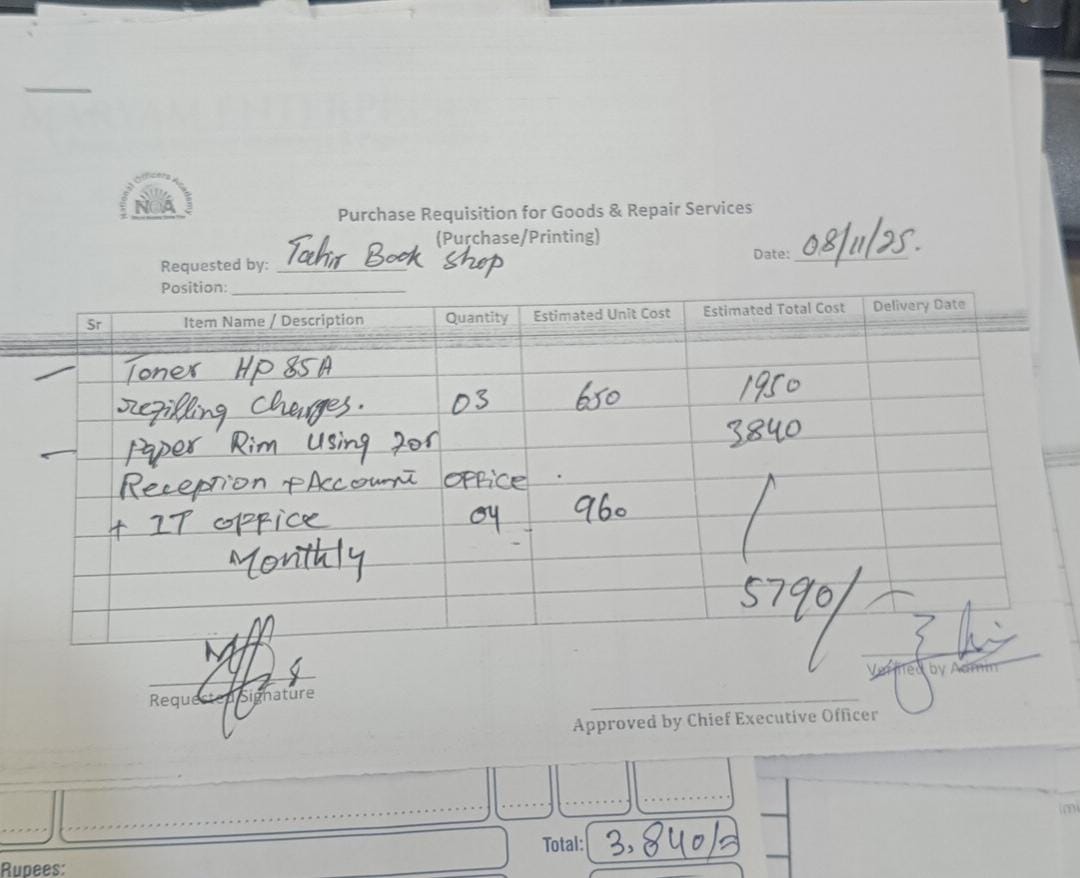 National Officers Academy
NOA
Purchase Requisition for Goods & Repair Services
(Purchase/Printing)
Requested by: Tahir Book Shop
Date: 08/11/25.
Position:
Sr Item Name / Description Quantity Estimated Unit Cost Estimated Total Cost Delivery Date
Toner HP 85A
refilling Charges. 03 650 1950
Paper Rim Using for 3840
Reception + Account OFFice
+ IT office 04 960
Monthly
5790/
Requested Signature
Verified by Admin
Approved by Chief Executive Officer
Total: 3,840/=
Rupees: